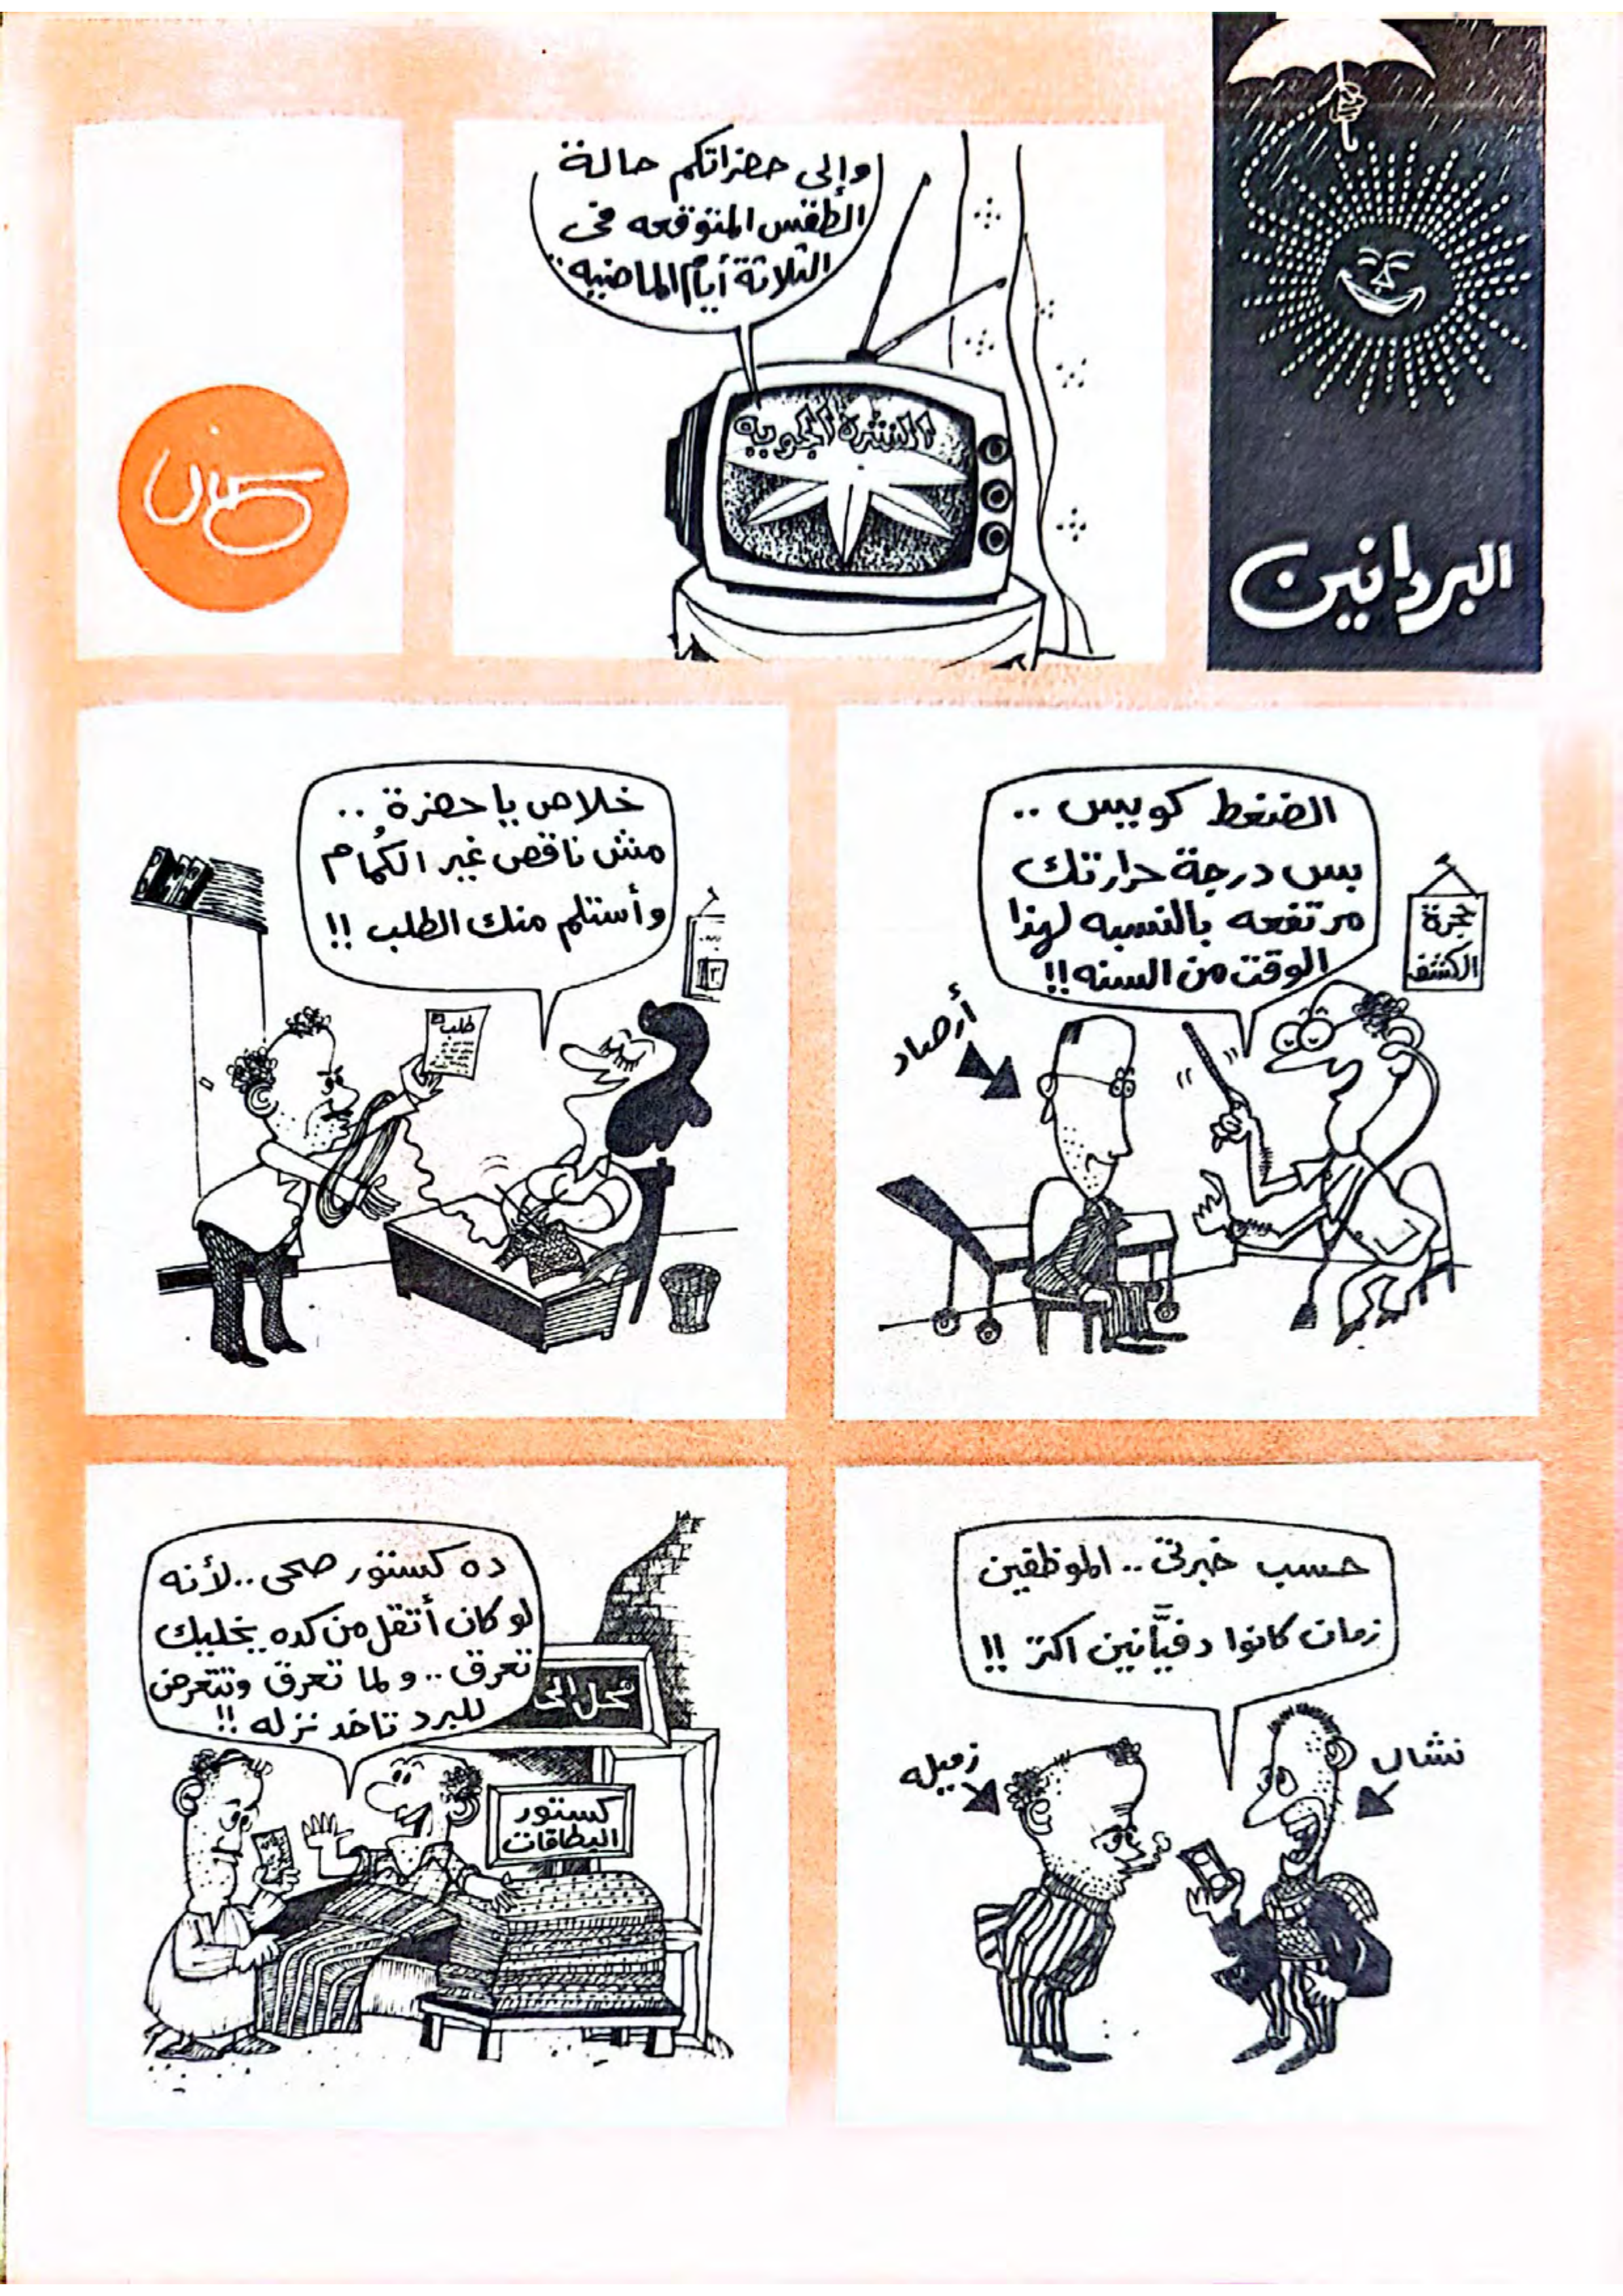 البردانين
وإلى حضراتكم حالة
الطقس المتوقعه فى
الثلاثة أيام الماضيه..
النشرة الجويه
الضغط كويس ..
بس درجة حرارتك
مرتفعه بالنسبه لهذا
الوقت من السنه !!
حجرة
الكشف
أرصاد
خلاص يا حضرة ..
مش ناقص غير الكُمام
وأستلم منك الطلب !!
طلب
حسب خبرتى .. الموظفين
زمان كانوا دفيَّانين اكتر !!
نشال
زميله
ده كستور صحى .. لأنه
لو كان أتقل من كده يخليك
تعرق .. و لما تعرق وتتعرض
للبرد تاخد نزله !!
محل الى
كستور
البطاقات